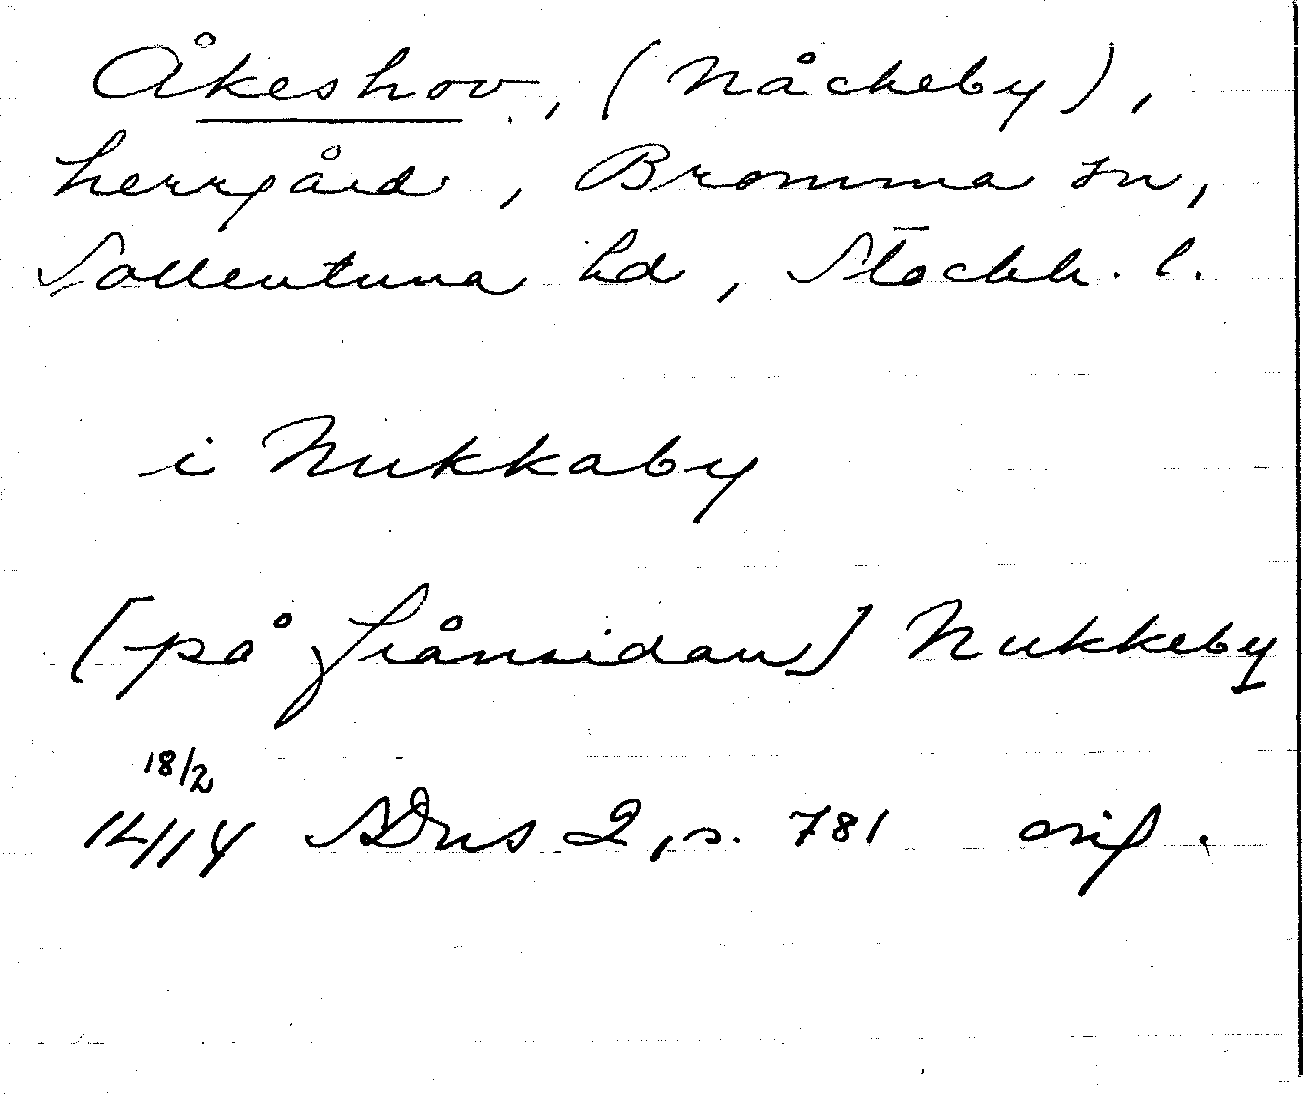 Åkeshov, (Nåckeby),
herrgård, Bromma sn,
Sollentuna hd, Stockh. l.
i Nukkaby
[på frånsidan] Nukkeby
18/2
1414 SDns 2, s. 781 orig.